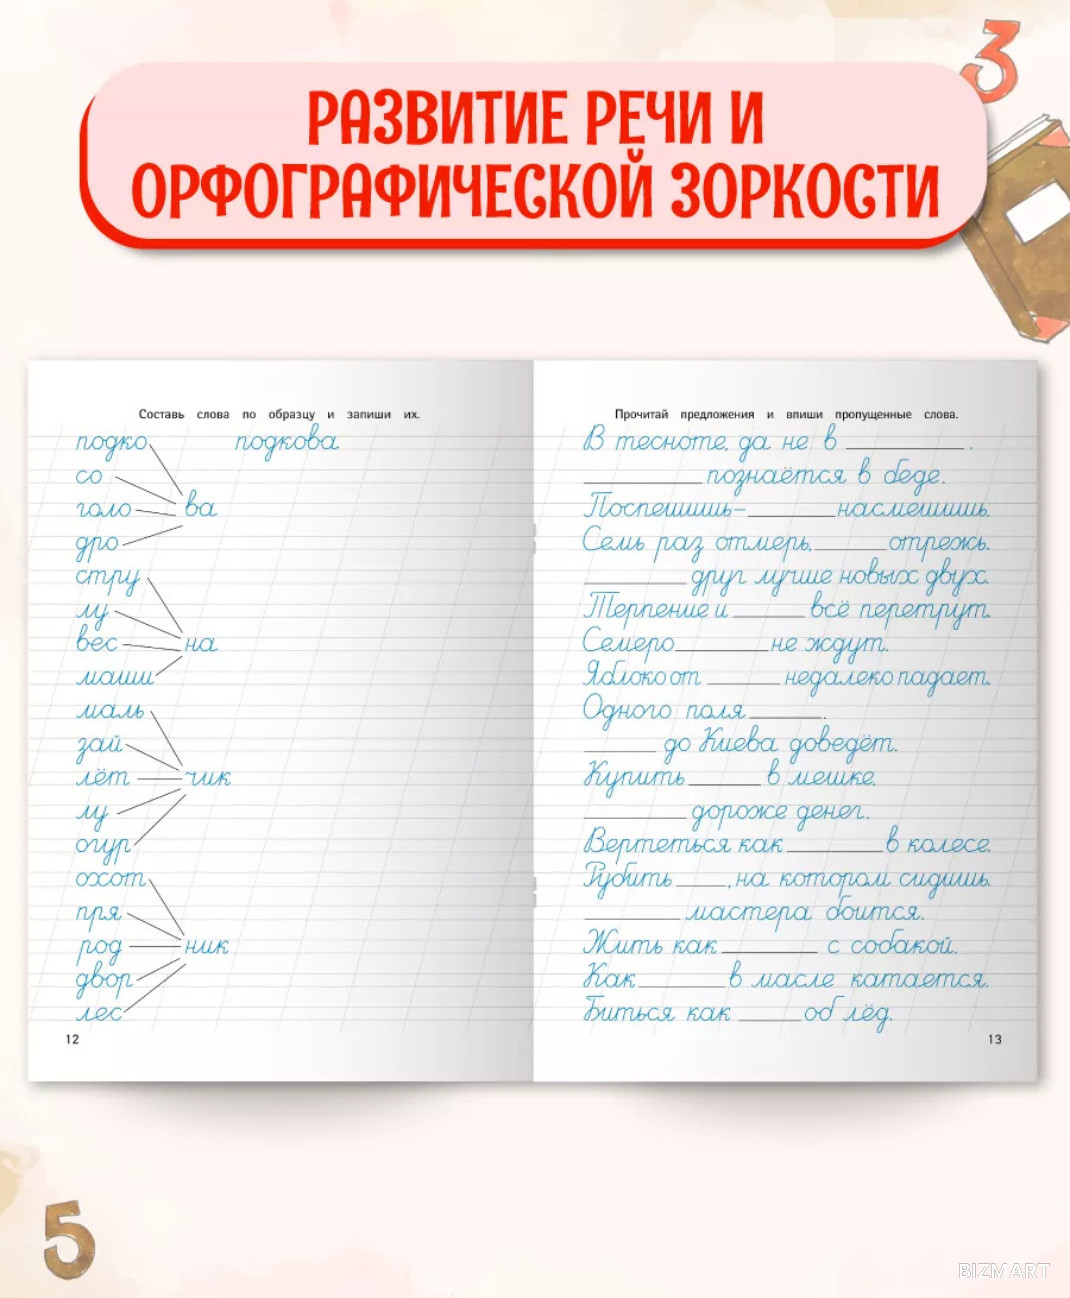 3
РАЗВИТИЕ РЕЧИ И
ОРФОГРАФИЧЕСКОЙ ЗОРКОСТИ
Составь слова по образцу и запиши их.
подко подкова
со
голо ва
дро
стру
лу
вес на
маши
маль
зай
лёт чик
лу
огур
охот
пря
род ник
двор
лес
12
Прочитай предложения и впиши пропущенные слова.
В тесноте, да не в ________.
________ познаётся в беде.
Поспешишь – ________ насмешишь.
Семь раз отмерь, ________ отрежь.
________ друг лучше новых двух.
Терпение и ________ всё перетрут.
Семеро ________ не ждут.
Яблоко от ________ недалеко падает.
Одного поля ________.
________ до Киева доведёт.
Купить ________ в мешке.
________ дороже денег.
Вертеться как ________ в колесе.
Рубить ________, на котором сидишь.
________ мастера боится.
Жить как ________ с собакой.
Как ________ в масле катается.
Биться как ________ об лёд.
13
5
BIZMART